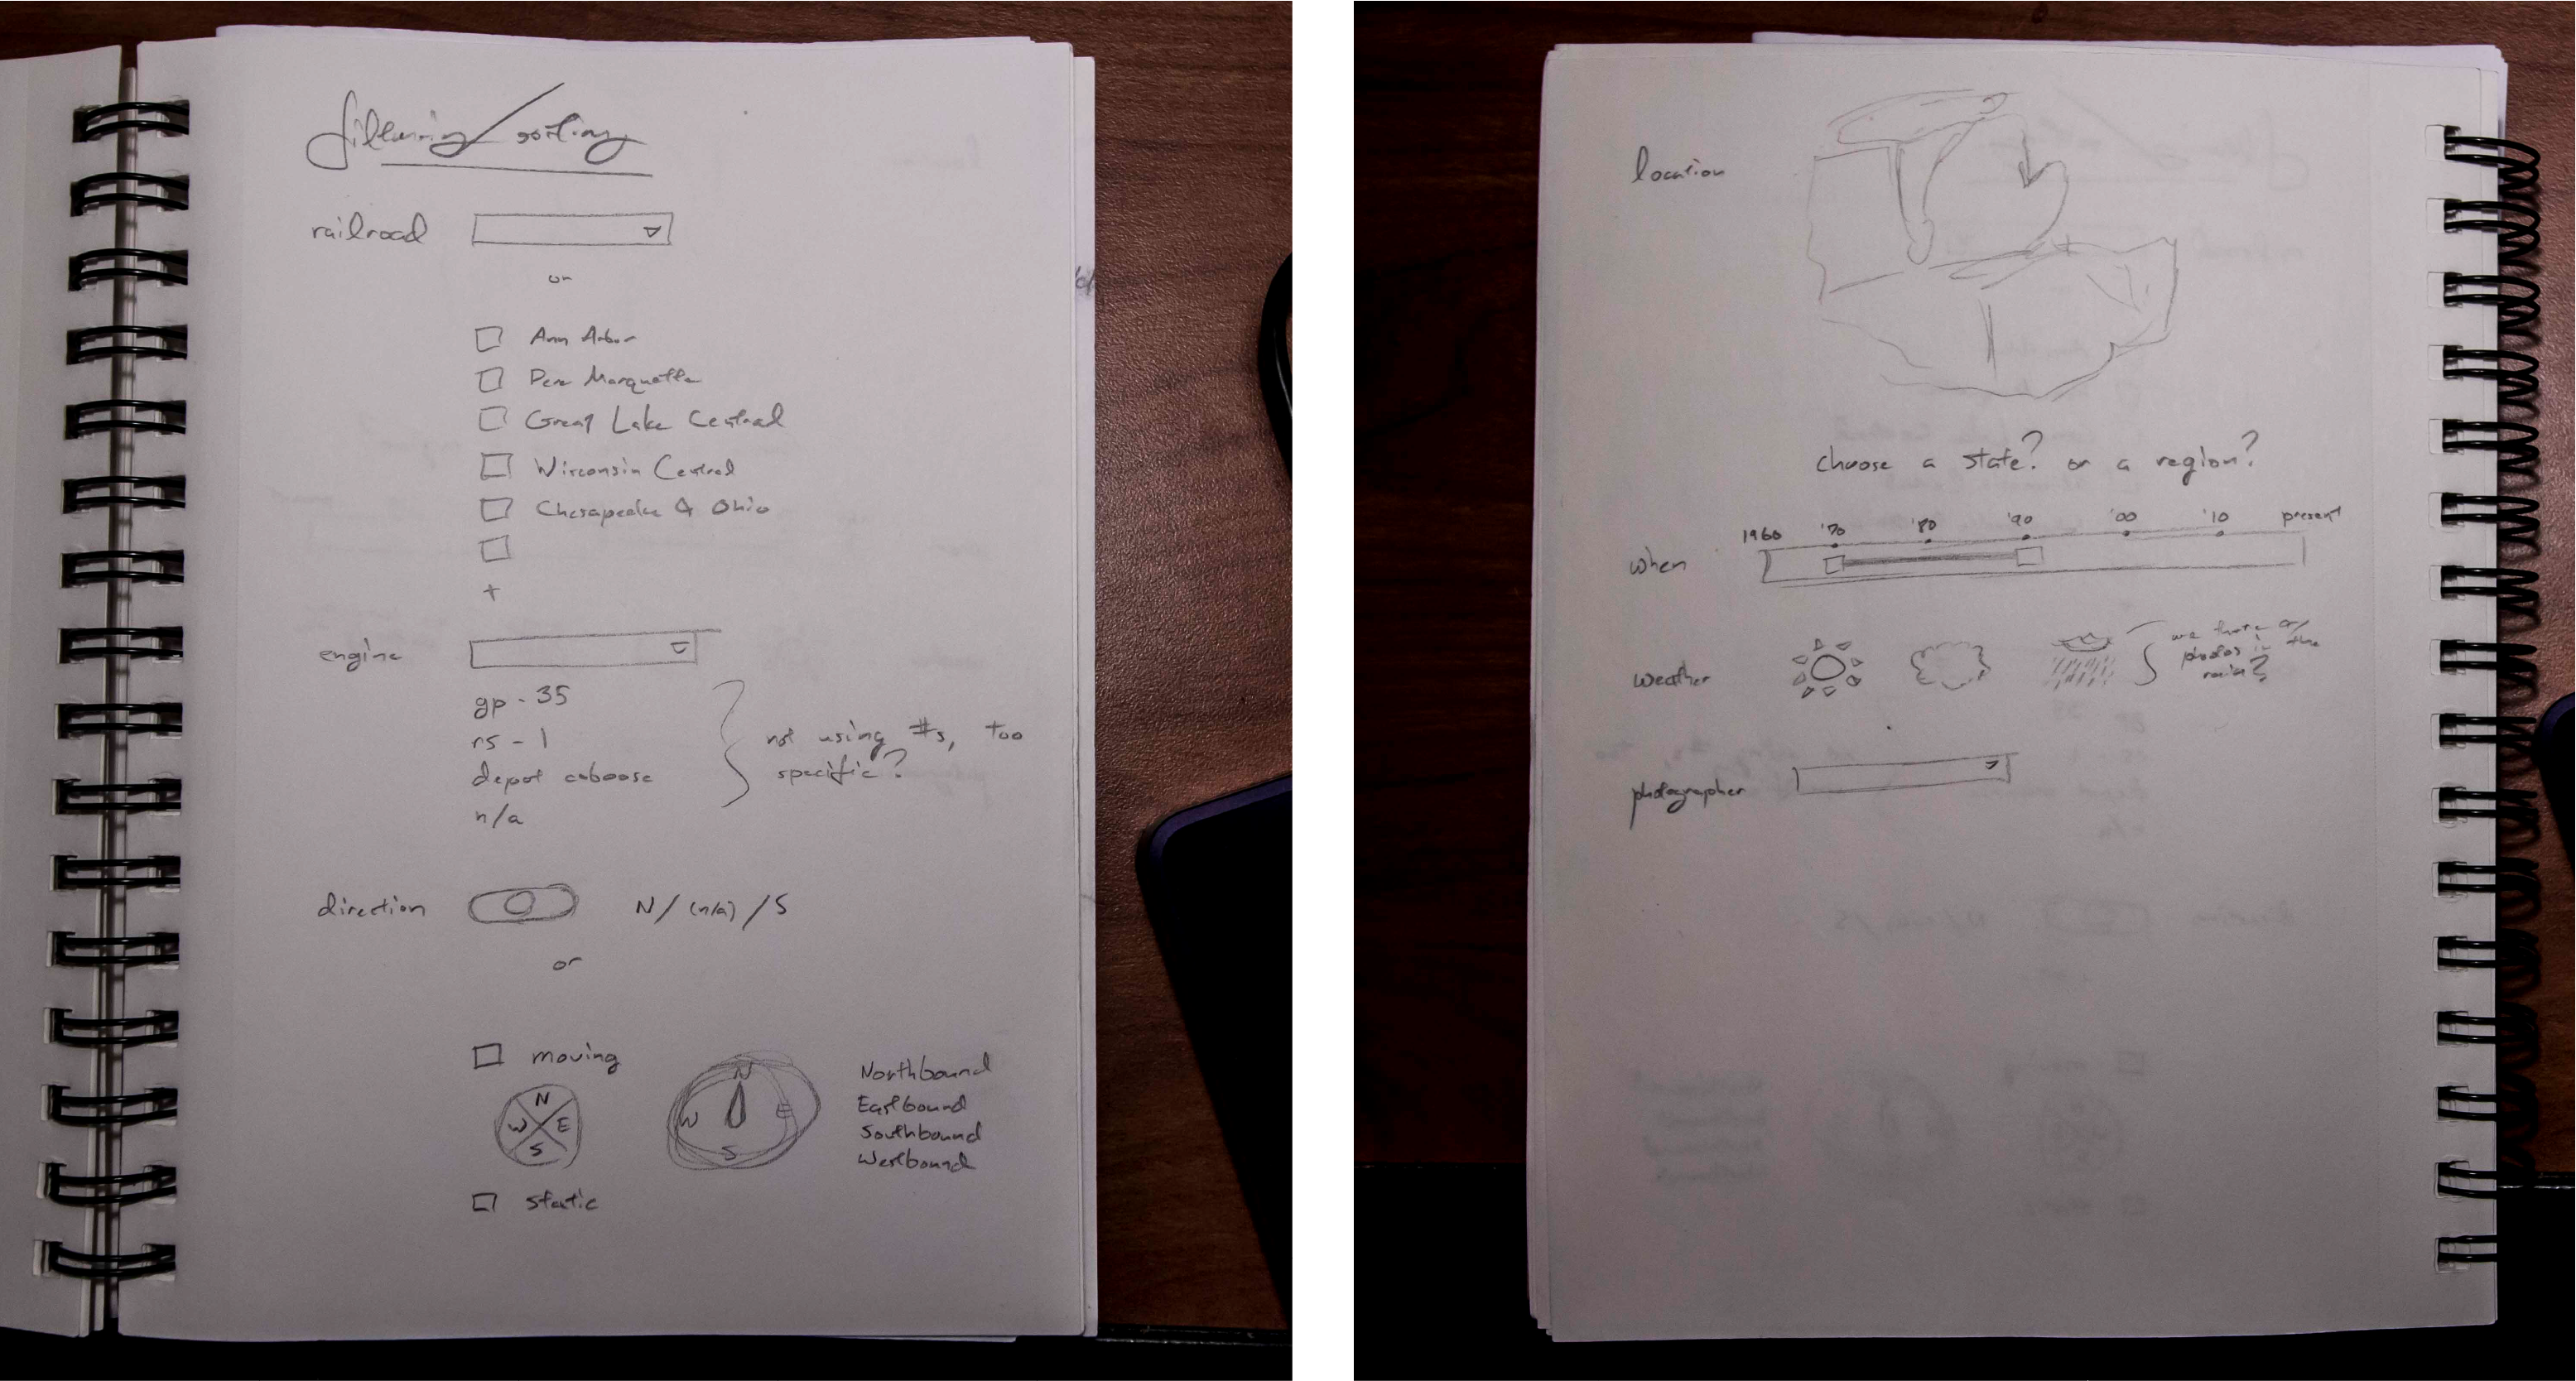 filtering/sorting
railroad
or
Ann Arbor
Pere Marquette
Great Lake Central
Wisconsin Central
Chesapeake & Ohio
+
engine
gp - 35
rs - 1
depot caboose
n/a
not using #s, too
specific?
direction
N/(n/a)/S
or
moving
N
W E
S
N
W E
S
Northbound
Eastbound
Southbound
Westbound
static
location
choose a state? or a region?
1960 '70 '80 '90 '00 '10 present
when
weather
photos in the
rain?
photographer